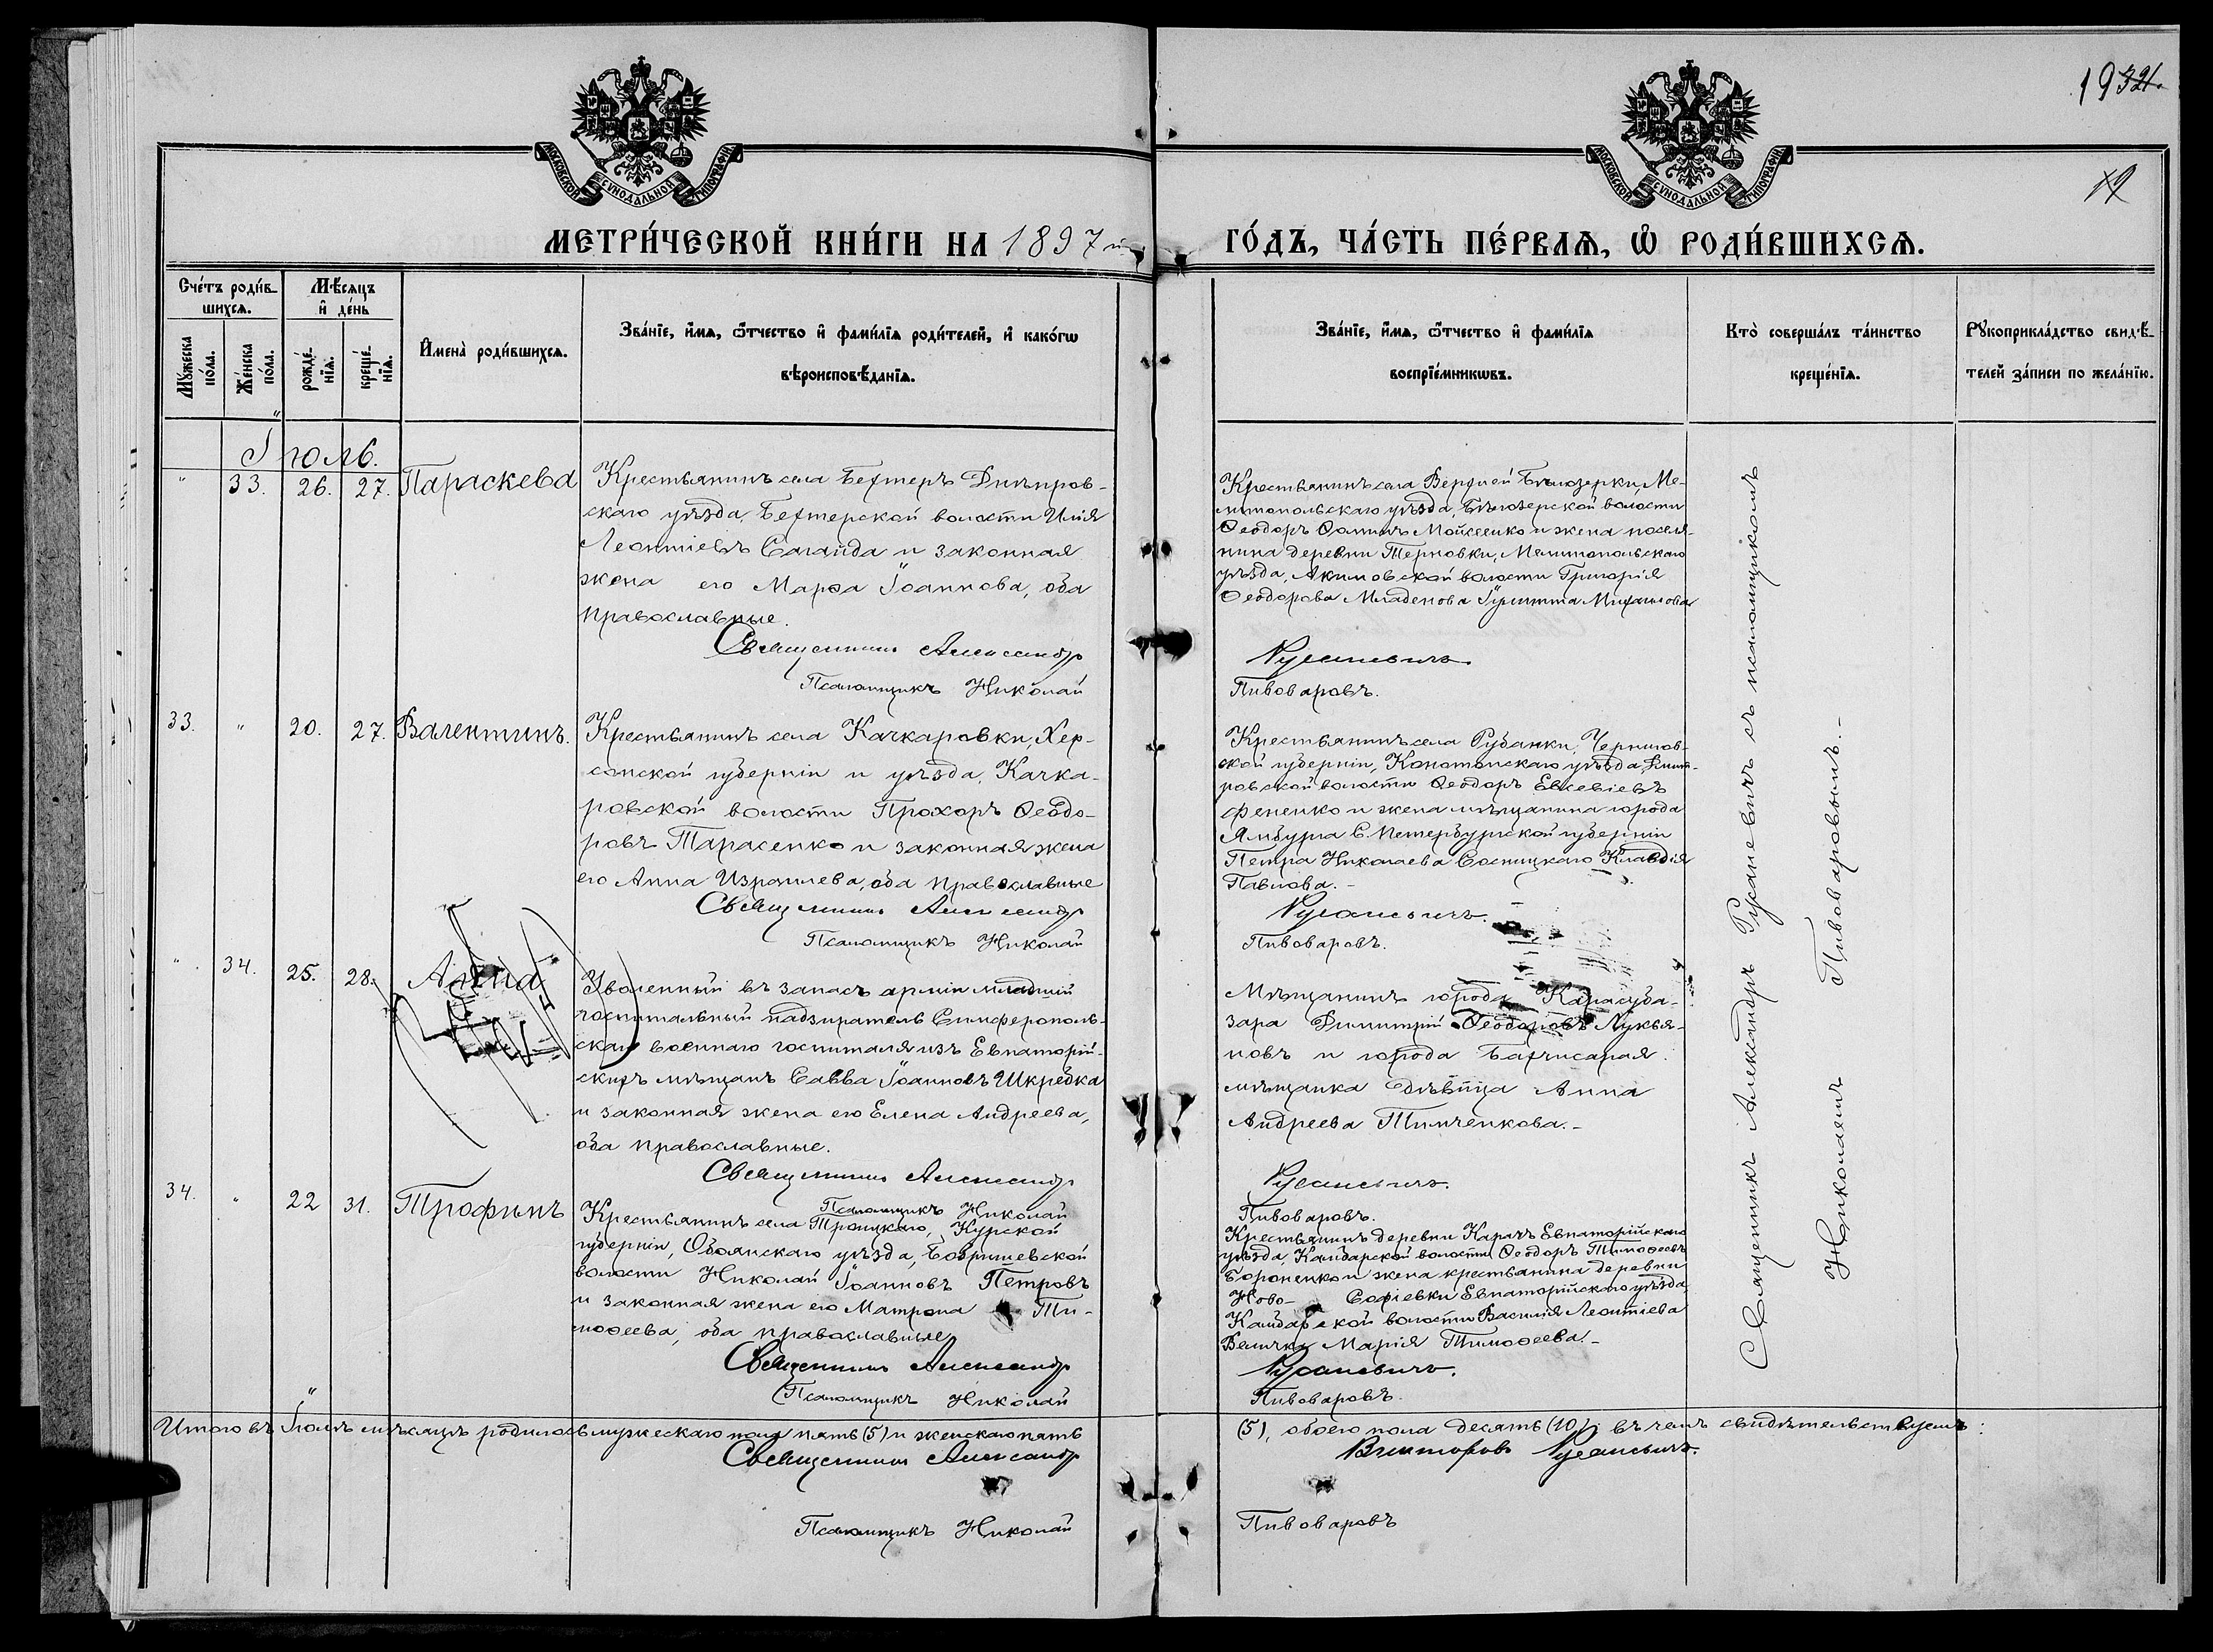 1932
12
МОСКОВСКОЙ СѴНОДАЛЬНОЙ ТИПОГРАФІИ
МОСКОВСКОЙ СѴНОДАЛЬНОЙ ТИПОГРАФІИ
МЕТРИ́ЧЕСКОЙ КНИ́ГИ НА 1897 й
ГО́ДЪ, ЧА́СТЬ ПЕ́РВАѦ, Ѡ҆ РОДИ́ВШИХСѦ.
Сче́тъ роди́в-
шихсѧ.
Мѣ́сѧцъ
и҆ де́нь
Мꙋ́жеска по́ла.
Же́нска по́ла.
рожде́-нїѧ.
креще́-нїѧ.
И҆мена̀ роди́вшихсѧ.
Зва́нїе, и҆́мѧ, ѻ҆́тчество и҆ фами́лїѧ роди́телей, и҆ како́гѡ
вѣроисповѣ́данїѧ.
Зва́нїе, и҆́мѧ, ѻ҆́тчество и҆ фами́лїѧ
воспрїе́мникѡвъ.
Кто̀ соверша́лъ та́инство
креще́нїѧ.
Рꙋкоприкла́дство свидѣ́-
телей за́писи по жела́нїю.
Іюль.
" 33. 26. 27. Параскева
Крестьянинъ села Бехтеръ Днѣпров-
скаго уѣзда, Бехтерской волости Илія
Леонтіевъ Сагайда и законная
жена его Марѳа Іоаннова, оба
православные.
Священникъ Александръ
Псаломщикъ Николай
Крестьянинъ села Верхней Бѣлозерки, Ме-
литопольскаго уѣзда, Бѣлозерской волости
Ѳеодоръ Ѳоминъ Мойсеенко и жена поселя-
нина деревни Терновки, Мелитопольскаго
уѣзда, Акимовской волости Григорія
Ѳеодорова Младенова Іулитта Михаилова
Русаневичъ.
Пивоваровъ.
33. " 20. 27. Валентинъ.
Крестьянинъ села Качкаровки, Хер-
сонской губерніи и уѣзда, Качка-
ровской волости Прохоръ Ѳеодо-
ровъ Тарасенко и законная жена
его Анна Израилева, оба православные
Священникъ Александръ
Псаломщикъ Николай
Крестьянинъ села Рубанки, Чернигов-
ской губерніи, Конотопскаго уѣзда, Дмит-
ровской волости Ѳеодоръ Евсевіевъ
Фененко и жена мѣщанина города
Ямбурга С. Петербургской губерніи
Петра Николаева Сосницкаго Клавдія
Павлова.-
Русаневичъ.
Пивоваровъ.
" 34. 25. 28. Анна
Уволенный въ запасъ арміи младшій
госпитальный надзиратель Симферополь-
скаго военнаго госпиталя изъ Евпаторій-
скихъ мѣщанъ Савва Іоанновъ Шкребка
и законная жена его Елена Андреева,
оба православные.
Священникъ Александръ
Псаломщикъ Николай
Мѣщанинъ города Карасуба-
зара Димитрій Ѳеодоровъ Лукья-
новъ и города Бахчисарая
мѣщанка дѣвица Анна
Андреева Тимченкова.-
Русаневичъ.
Пивоваровъ.
34. " 22 31. Трофимъ
Крестьянинъ села Троицкаго, Курской
губерніи, Обоянскаго уѣзда, Бобрышевской
волости Николай Іоанновъ Петровъ
и законная жена его Матрона Ти-
моѳеева, оба православные
Священникъ Александръ
Псаломщикъ Николай
Крестьянинъ деревни Карачъ Евпаторійскаго
уѣзда, Камбарской волости Ѳеодоръ Тимоѳеевъ
Бороненко и жена крестьянина деревни
Ново- Софіевки Евпаторійскаго уѣзда,
Камбарской волости Василія Леонтіева
Величка Марія Тимоѳеева.-
Русаневичъ.
Пивоваровъ.
Священникъ Александръ Русаневичъ съ псаломщикомъ
Николаемъ Пивоваровымъ.-
Итого въ Іюлѣ мѣсяцѣ родилось мужескаго пола пять (5) и женскаго пять
(5), обоего пола десять (10); въ чемъ свидѣтельствуемъ:
Священникъ Александръ
Викторовъ Русаневичъ.
Псаломщикъ Николай
Пивоваровъ